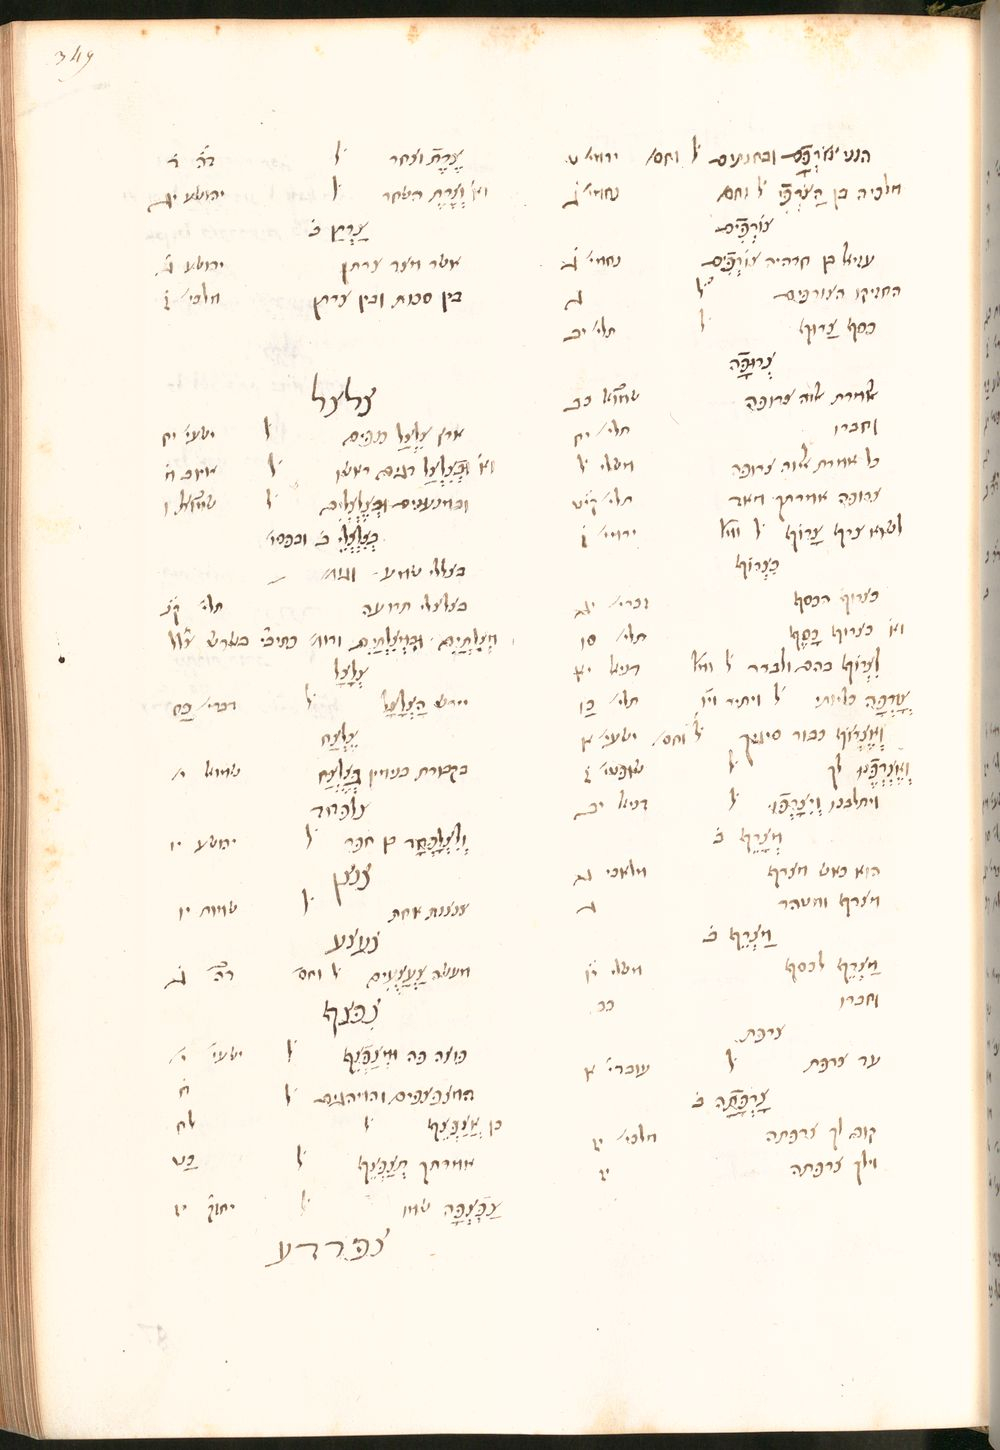 349
הנני צוֹרְפָם ובחנתים ל׳ וחס׳ ירמי׳ ט
מלכיה בן הַצֹּרְפִי ל׳ וחס׳ נחמי׳ ג
צוֹרְפִים
עזיאל בן חרהיה צוֹרְפִים נחמי׳ ג
החזיקו הצורפים ל׳ ג
כסף צָרוּף ל׳ תלי׳ יב
צְרוּפָה
אמרת יי׳ צרופה שמואל כב
וחברו תלי׳ יח
כל אמרת אלוה צרופה משלי ל
צרופה אמרתך מאד תלי׳ קיט
לשוא צרף צָרוֹף ל׳ ומל׳ ירמי׳ ו
כִּצְרוֹף
כצרוף הכסף זכרי׳ יג
וא׳ כצרוף כָּסֶף תלי׳ סו
לִצְרוֹף בהם ולברר ל׳ ומל׳ דניאל יא
צָרְפָה כליותי ל׳ ויתיר ו׳ תלי׳ כו
וְאֶצְרוֹף כבור סיגיך ל׳ וחס׳ ישעי׳ א
וְאֶצְרְפֶנּוּ לך ל׳ שופטי׳ ז
ויתלבנו וְיִצָּרְפוּ ל׳ דניאל יב
מְצָרֵף ב׳
הוא כאש מצרף מלאכי ג
מצרף ומטהר ג
מַצְרֵף ב׳
מַצְרֵף לכסף משלי יז
וחברו כז
צרפת
עד צרפת ל׳ עובדי׳ א
צָרְפַתָה ב׳
קום לך צרפתה מלכי׳ יז
וילך צרפתה יז
צֶרֶת וצחר ל׳ דה׳ ד
וא׳ וְצֶרֶת השחר ל׳ יהושע יג
צָרְתָן ב׳
אשר מצד צרתן יהושע ג
בין סכות ובין צרתן מלכי׳ ז
צלצל
ארץ צִלְצַל כנפים ל׳ ישעי׳ יח
וא׳ וּבְצִלְצַל דגים ראשו ל׳ איוב מ
ובמנענעים וּבְצֶלְצֱלִים ל׳ שמואל ו
בְצִלְצְלֵי ב׳ ובפסו׳
בצלצלי שמע
בצלצלי תרועה תלי׳ קנ
מְצִלְתַּיִם וּבִמְצִלְתַּיִם
צְלָצָל
יירש הַצְּלָצַל ל׳ דברי׳ כח
צֶלְצַח
בגבול בנימין בְּצֶלְצַח שמואל י׳
צלפחד
וְלִצְלָפְחָד בן חפר ל׳ יהושע יז
צנצן
צנצנת אחת ל׳ שמות יו
צעצע
מעשה צַעֲצֻעִים ל׳ וחס׳ דה׳ ג
צפצף
פוצה פה וּמְצַפְצֵף ל׳ ישעי׳ י׳
המצפצפים והמהגים ל׳ ח
כן אֲצַפְצֵף ל׳ לח
אמרתך תְּצַפְצֵף ל׳ כט
צַפְצָפָה שמו ל׳ יחזק׳ יז
צפרדע